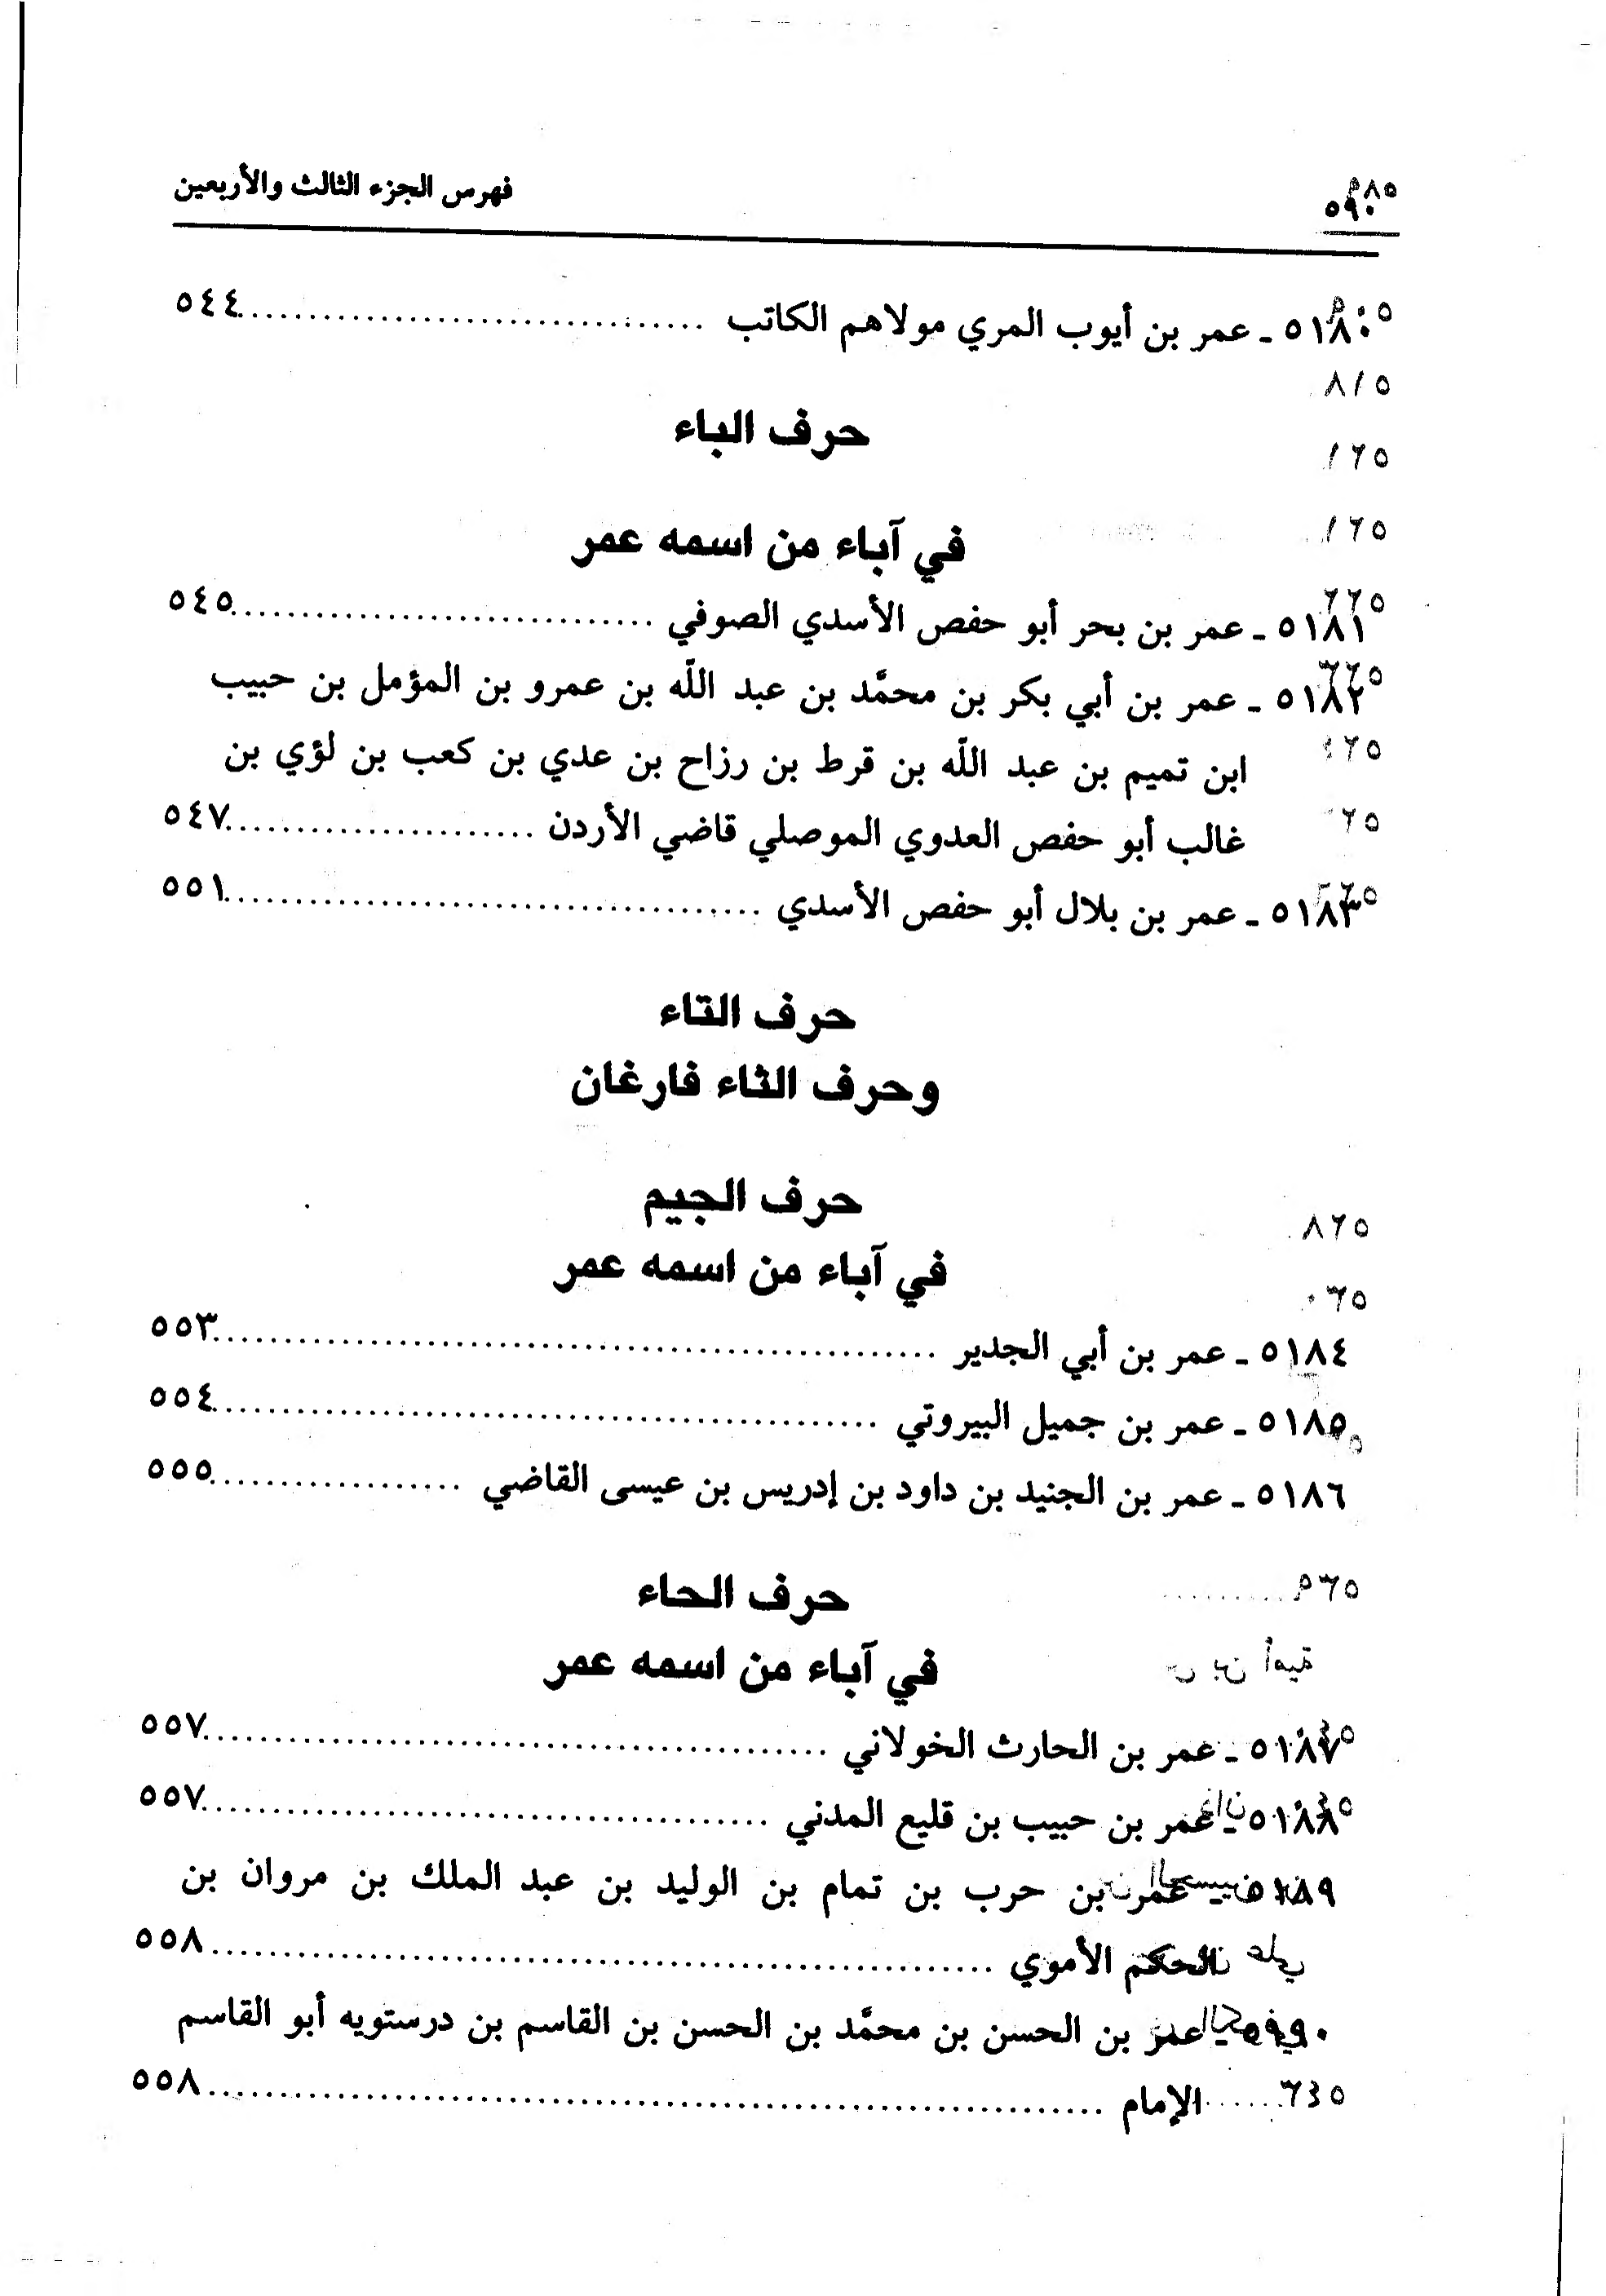 ٥٩٠ فهرس الجزء الثالث والأربعين
٥١٨٠ ـ عمر بن أيوب المري مولاهم الكاتب ........ ٥٤٤
حرف الباء
في آباء من اسمه عمر
٥١٨١ ـ عمر بن بحر أبو حفص الأسدي الصوفي ........ ٥٤٥
٥١٨٢ ـ عمر بن أبي بكر بن محمَّد بن عبد اللّه بن عمرو بن المؤمل بن حبيب
ابن تميم بن عبد اللّه بن قرط بن رزاح بن عدي بن كعب بن لؤي بن
غالب أبو حفص العدوي الموصلي قاضي الأردن ........ ٥٤٧
٥١٨٣ ـ عمر بن بلال أبو حفص الأسدي ........ ٥٥١
حرف التاء
وحرف الثاء فارغان
حرف الجيم
في آباء من اسمه عمر
٥١٨٤ ـ عمر بن أبي الجدير ........ ٥٥٣
٥١٨٥ ـ عمر بن جميل البيروتي ........ ٥٥٤
٥١٨٦ ـ عمر بن الجنيد بن داود بن إدريس بن عيسى القاضي ........ ٥٥٥
حرف الحاء
في آباء من اسمه عمر
٥١٨٧ ـ عمر بن الحارث الخولاني ........ ٥٥٧
٥١٨٨ ـ عمر بن حبيب بن قليع المدني ........ ٥٥٧
٥١٨٩ ـ عمر بن حرب بن تمام بن الوليد بن عبد الملك بن مروان بن
الحكم الأموي ........ ٥٥٨
٥١٩٠ ـ عمر بن الحسن بن محمَّد بن الحسن بن القاسم بن درستويه أبو القاسم
الإمام ........ ٥٥٨